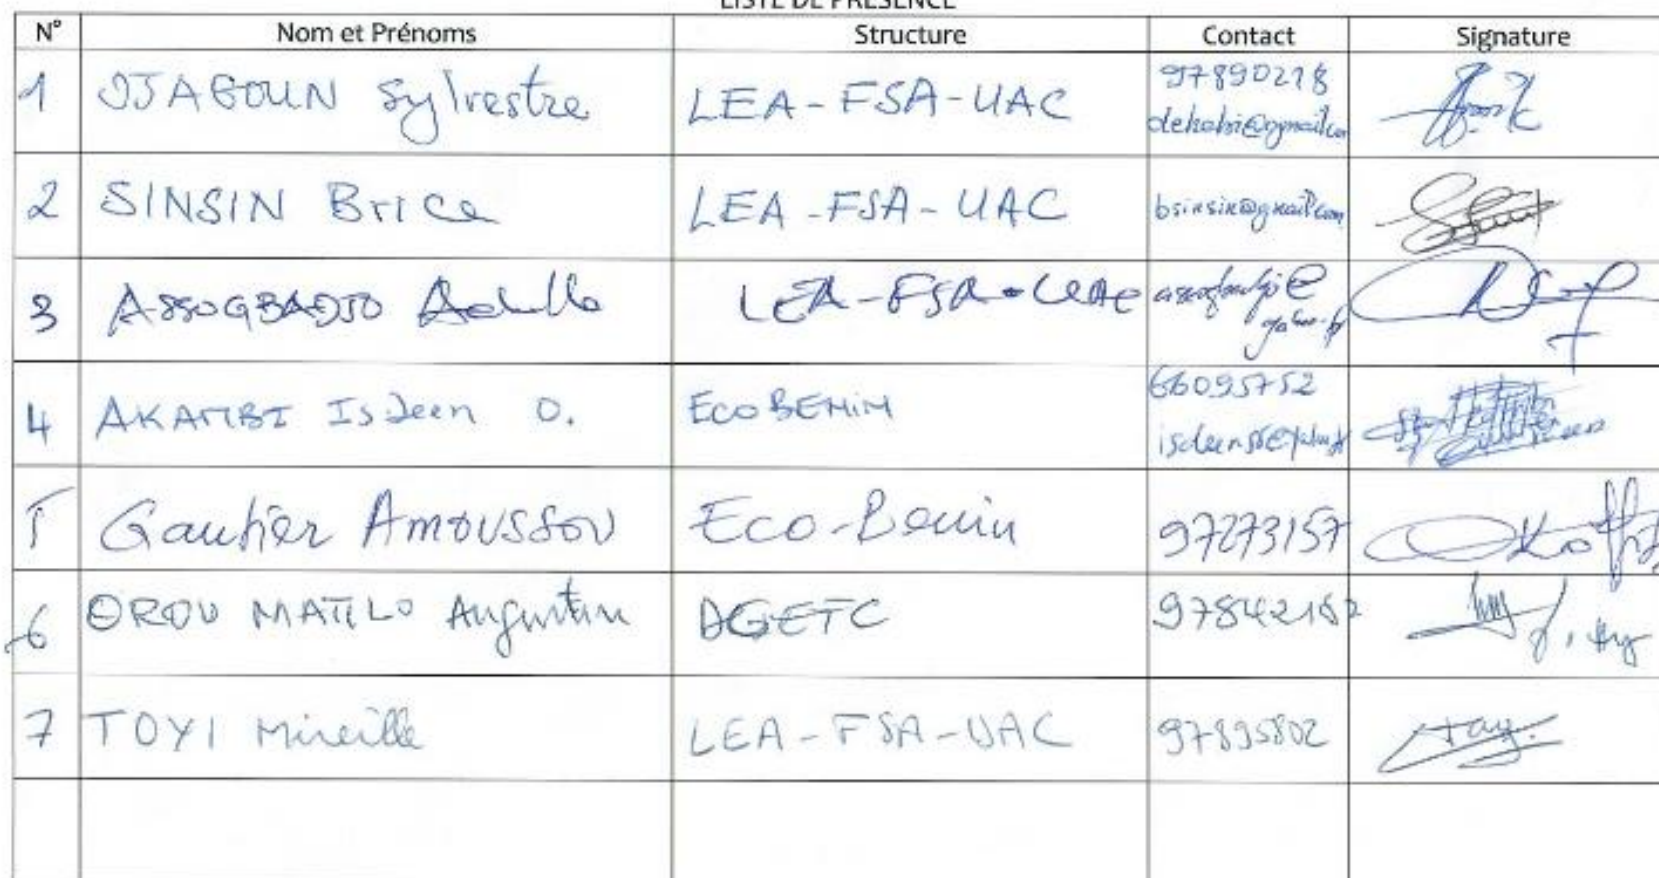 LISTE DE PRESENCE
N° Nom et Prénoms Structure Contact Signature
1 DJAGOUN Sylvestre LEA-FSA-UAC 97890218
dehabi@gmail.com
2 SINSIN Brice LEA-FSA-UAC bsinsin@gmail.com
3 ASSOGBADJO Achille LEA-FSA-UAC
4 AKAMBI Isdeen O. ECOBENIN 66095752
5 Gautier AMOUSSOU Eco-Benin 97273157
6 OROU MATILO Augustin DGETC 97842152
7 TOYI Mireille LEA-FSA-UAC 97895802